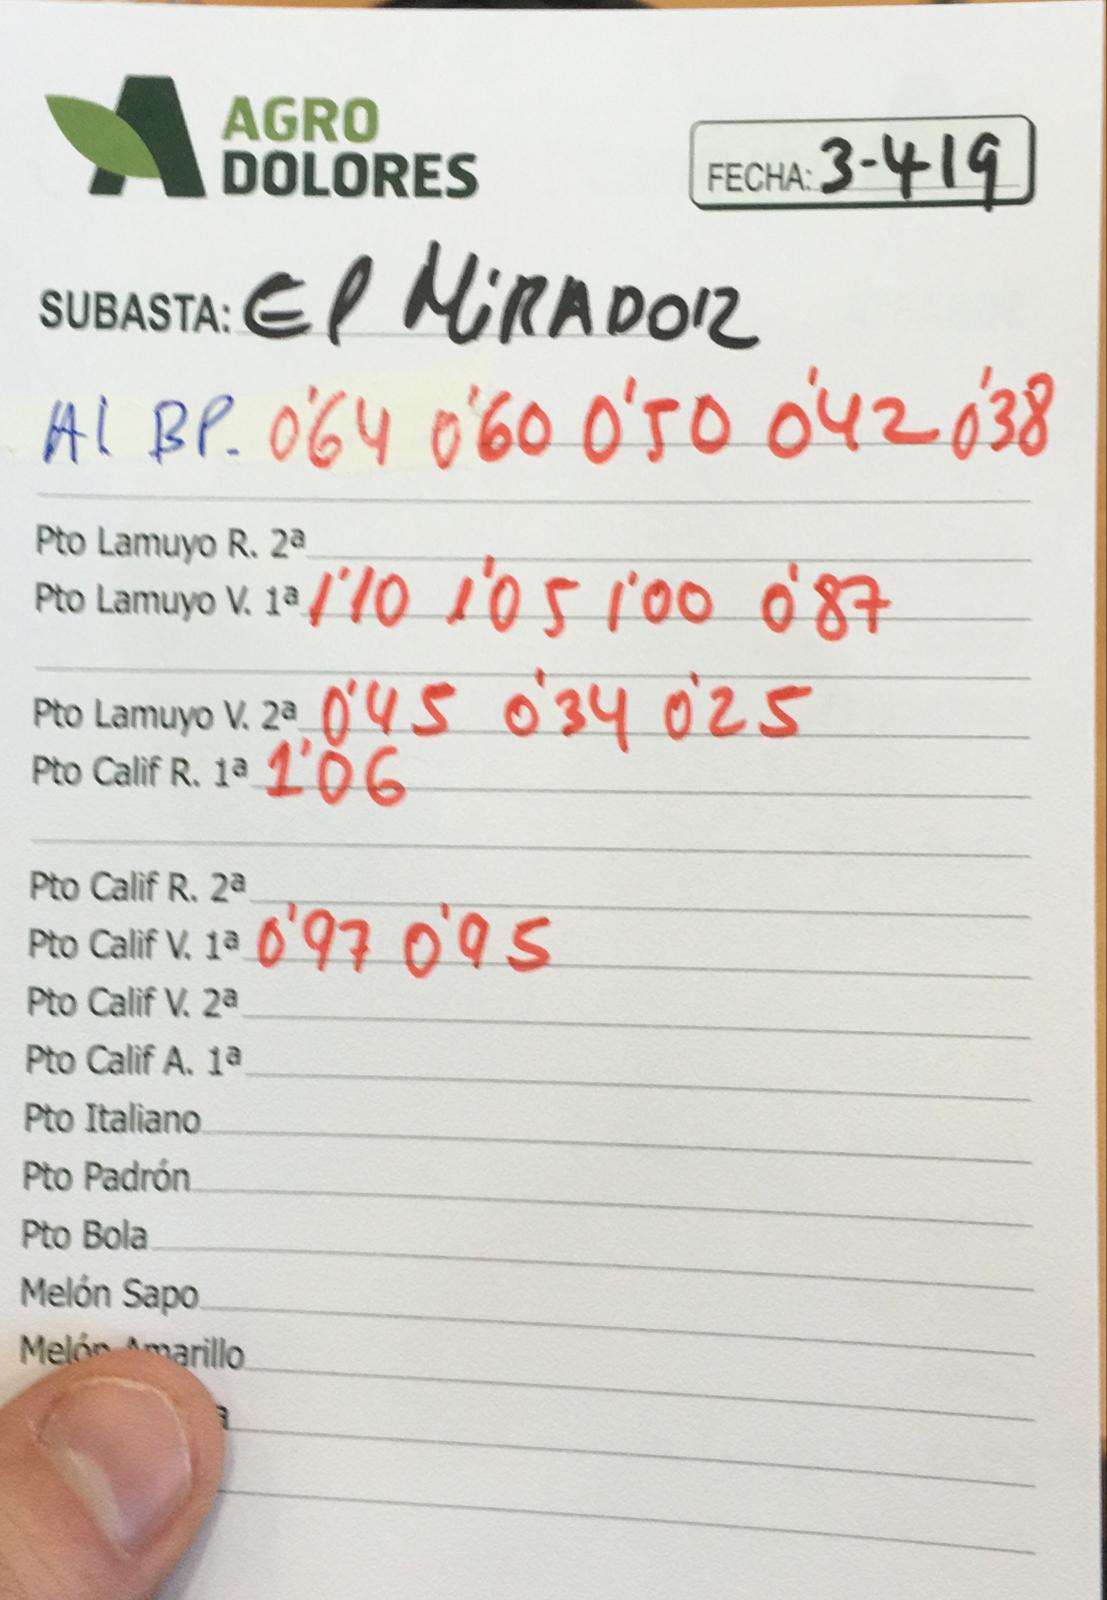 AGRO
DOLORES
FECHA: 3-4 19
SUBASTA: EP MiRADOR
Al BP. 0'64 0'60 0'50 0'42 0'38
Pto Lamuyo R. 2ª
Pto Lamuyo V. 1ª 1'10 1'05 1'00 0'87
Pto Lamuyo V. 2ª 0'45 0'34 0'25
Pto Calif R. 1ª 1'06
Pto Calif R. 2ª
Pto Calif V. 1ª 0'97 0'95
Pto Calif V. 2ª
Pto Calif A. 1ª
Pto Italiano
Pto Padrón
Pto Bola
Melón Sapo
Melón Amarillo